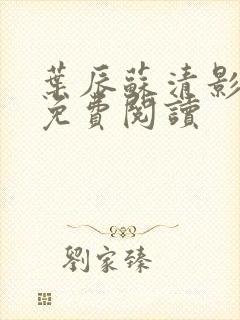 葉辰蘇清影
免費閱讀
劉家臻